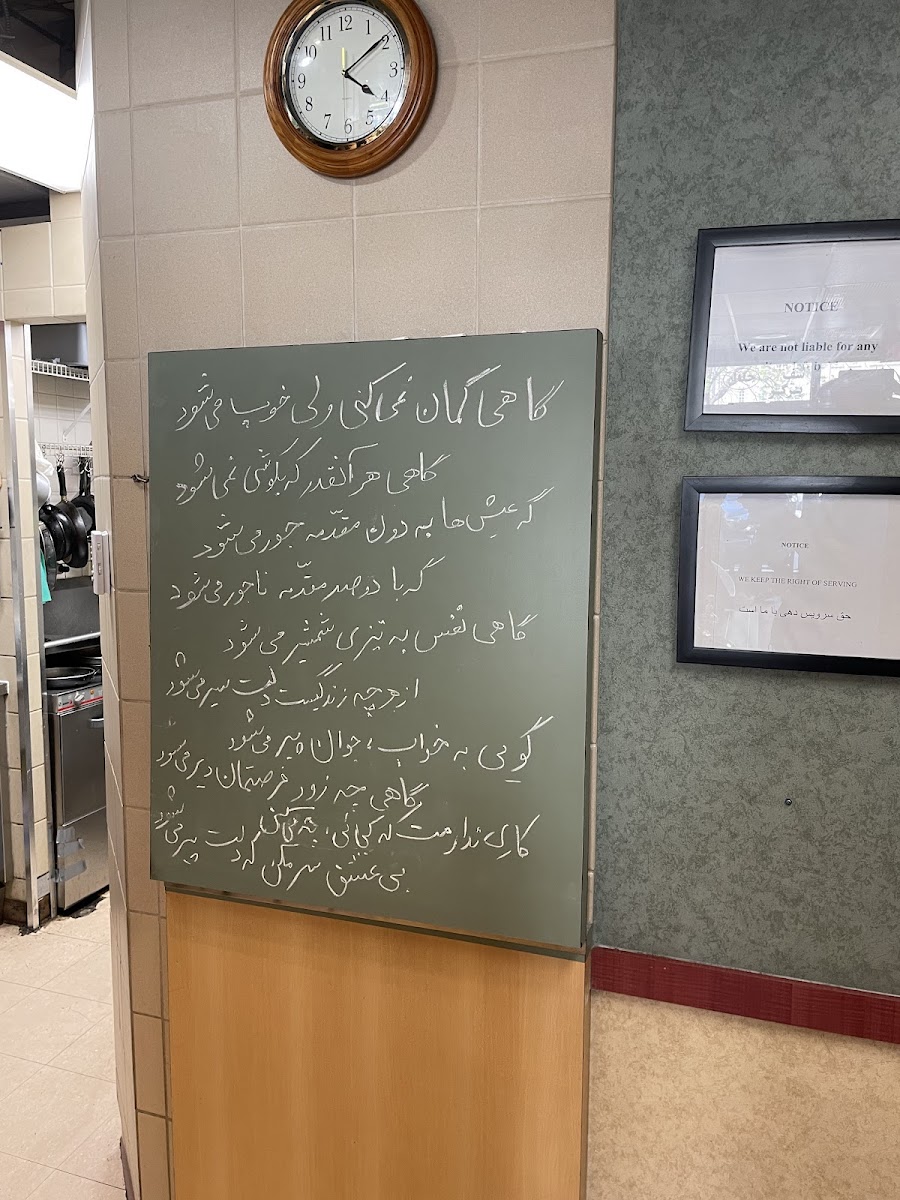 12
1
2
3
4
5
6
7
8
9
10
11
گاهی گمان نمی‌کنی ولی خوب می‌شود
گاهی هر آنقدر که بکوشی نمی‌شود
گه عیش‌ها به دون مقدّمه جور می‌شود
گه با دو صد مقدّمه ناجور می‌شود
گاهی نفس به تیزی شمشیر می‌شود
از هر چه زندگیست دلت سیر می‌شود
گویی به خواب، جوان پیر می‌شود
گاهی چه زود فرصتمان دیر می‌شود
کاری ندارمت که کجائی، چه می‌کنی
بی عشق سر مکن که دلت پیر می‌شود
NOTICE
We are not liable for any
NOTICE
WE KEEP THE RIGHT OF SERVING
حق سرویس دهی با ما است